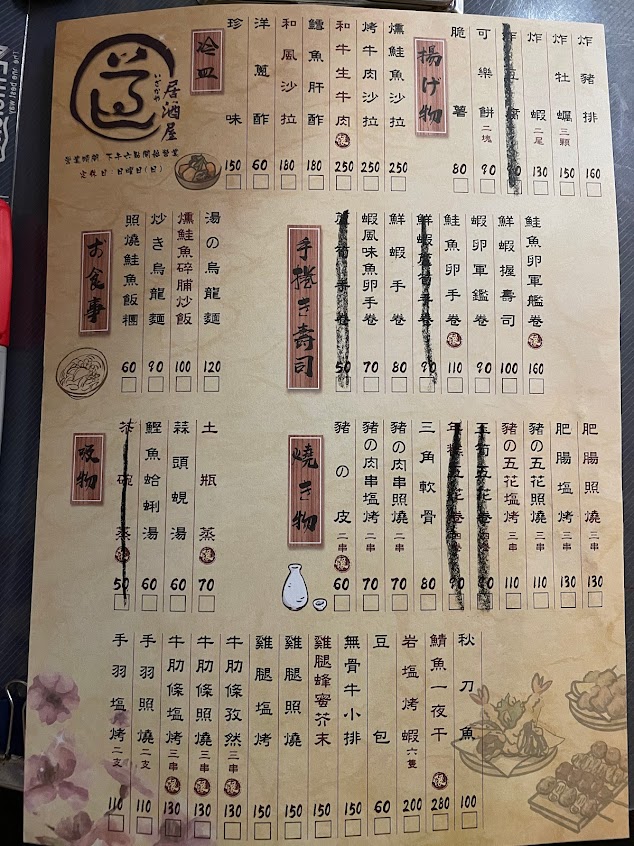 居酒屋
いざかや
營業時間 下午六點開始營業
定休日:日曜日(日)
冷皿
珍味 150
洋蔥酢 60
和風沙拉 180
鱈魚肝酢 180
和牛生牛肉 250
烤牛肉沙拉 250
燻鮭魚沙拉 250
揚げ物
脆薯 80
可樂餅 二塊 90
炸蝦 二尾 130
炸牡蠣 三顆 150
炸豬排 160
お食事
照燒鮭魚飯糰 60
炒き烏龍麵 90
燻鮭魚碎脯炒飯 100
湯の烏龍麵 120
手捲き壽司
蘆筍手卷 50
蝦風味魚卵手卷 70
鮮蝦手卷 80
鮮蝦蘆筍手卷 90
鮭魚卵手卷 110
蝦卵軍鑑卷 90
鮮蝦握壽司 100
鮭魚卵軍艦卷 160
吸物
茶碗蒸 50
鰹魚蛤蜊湯 60
蒜頭蜆湯 60
土瓶蒸 70
燒き物
豬の皮 二串 60
豬の肉串塩烤 二串 70
豬の肉串照燒 二串 70
三角軟骨 80
豬の五花塩烤 三串 110
豬の五花照燒 三串 110
肥腸塩烤 三串 130
肥腸照燒 三串 130
手羽塩烤 二支 110
手羽照燒 二支 110
牛肋條塩烤 三串 130
牛肋條照燒 三串 130
牛肋條孜然 三串 130
雞腿塩烤 150
雞腿照燒 150
雞腿蜂蜜芥末 150
無骨牛小排 150
豆包 60
岩塩烤蝦 六隻 200
鯖魚一夜干 280
秋刀魚 100